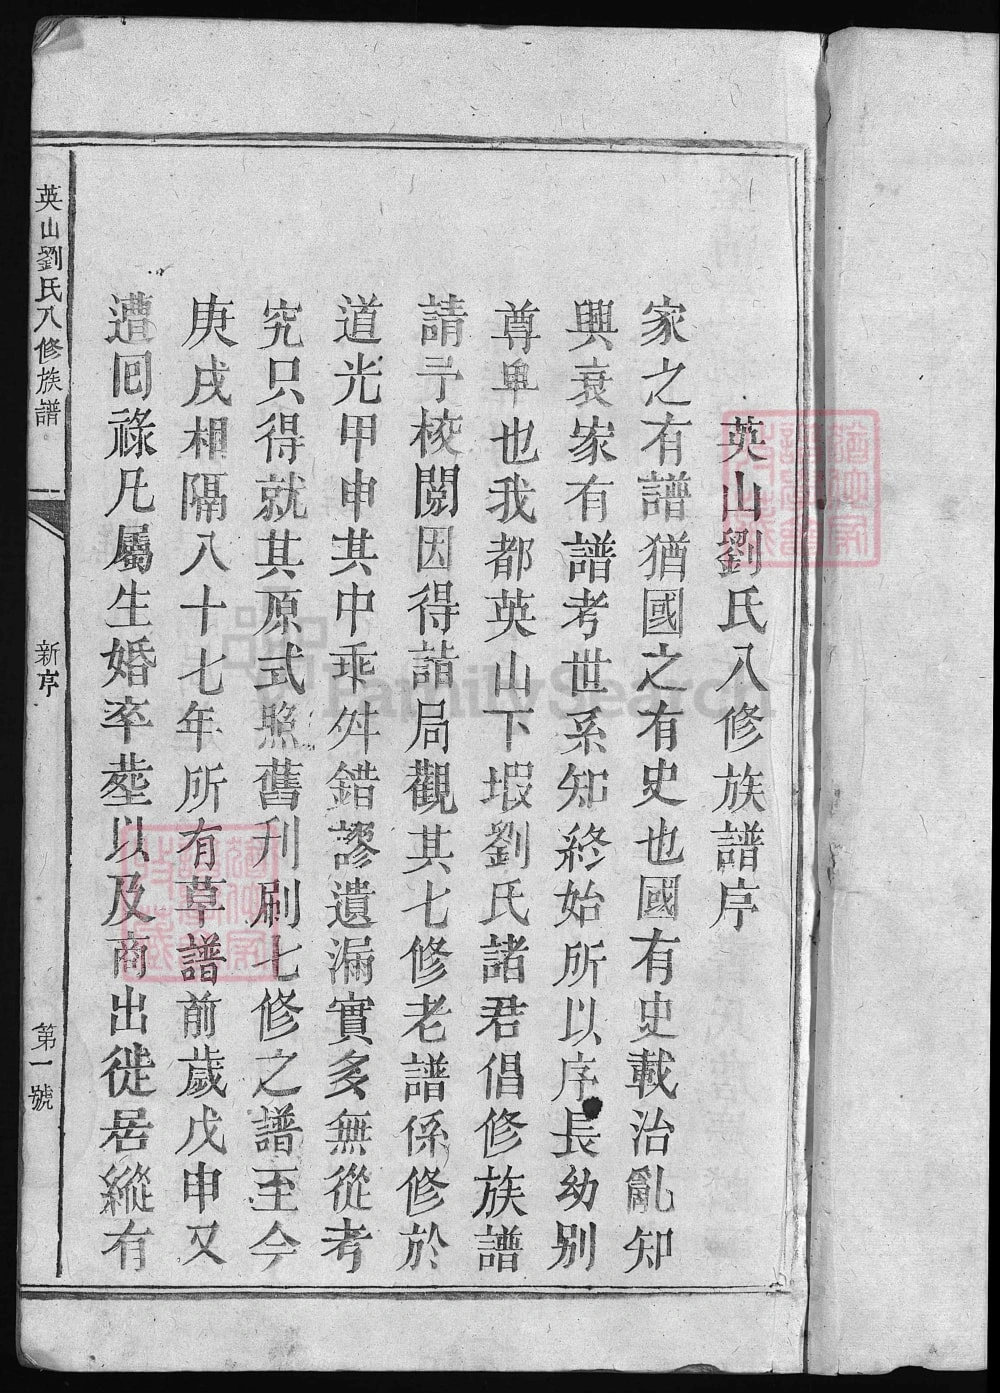 英山劉氏八修族譜序
家之有譜猶國之有史也國有史載治亂知
興衰家有譜考世系知終始所以序長幼別
尊卑也我都英山下塅劉氏諸君倡修族譜
請予校閱因得詣局觀其七修老譜係修於
道光甲申其中乖舛錯謬遺漏實多無從考
究只得就其原式照舊刋刷七修之譜至今
庚戌相隔八十七年所有草譜前歲戊申又
遭囘祿凡屬生婚卒塟以及商出徙居縱有
英山劉氏八修族譜
新序
第一號
FamilySearch